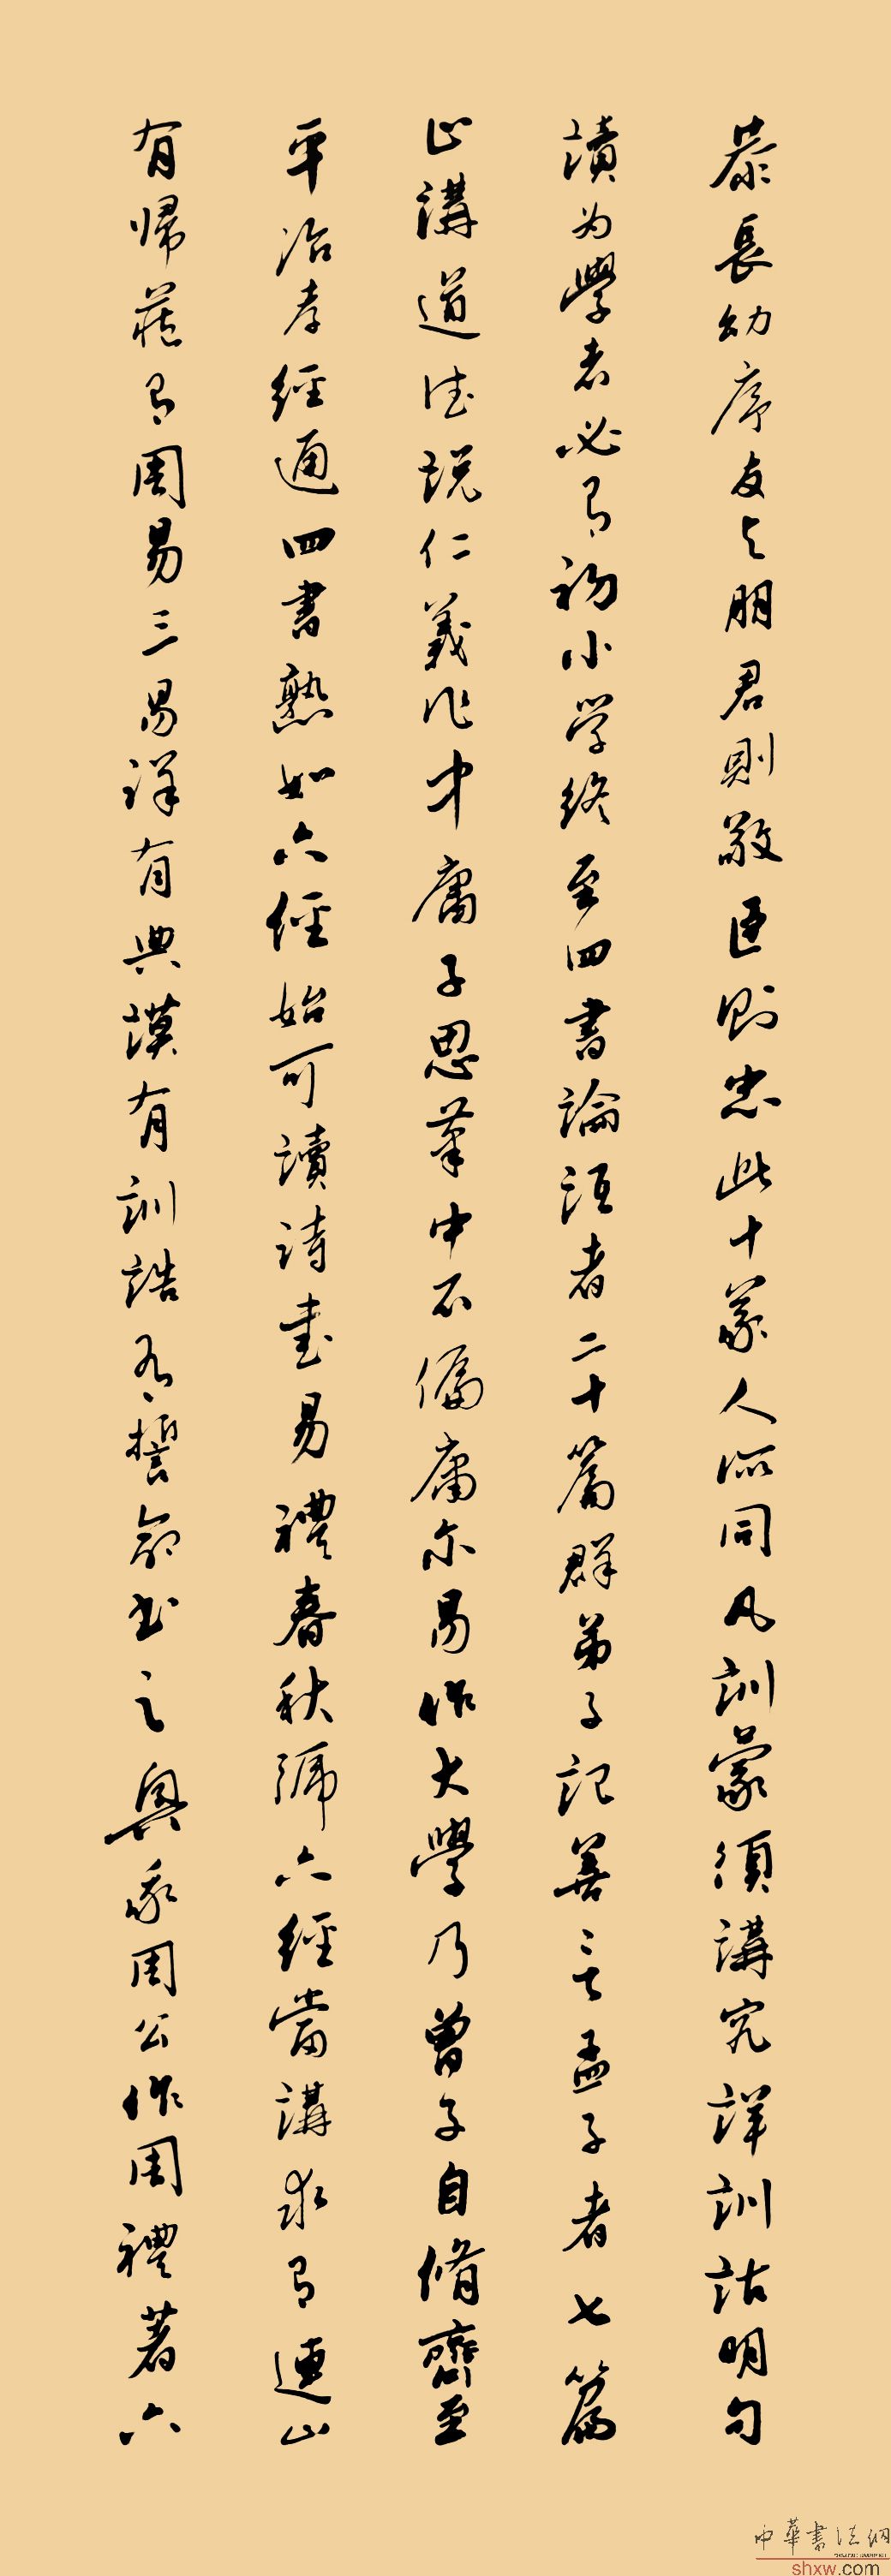 恭長幼序友与朋君則敬臣則忠此十義人所同凡訓蒙須講究詳訓詁明句
讀为學者必有初小学終至四書論語者二十篇群弟子記善言孟子者七篇
止講道德說仁義作中庸子思筆中不偏庸不易作大學乃曾子自脩齊至
平治孝經通四書熟如六經始可讀詩書易禮春秋號六經當講求有連山
有帰藏有周易三易詳有典謨有訓誥有誓命書之奥我周公作周禮著六
中華書法網
shxw.com